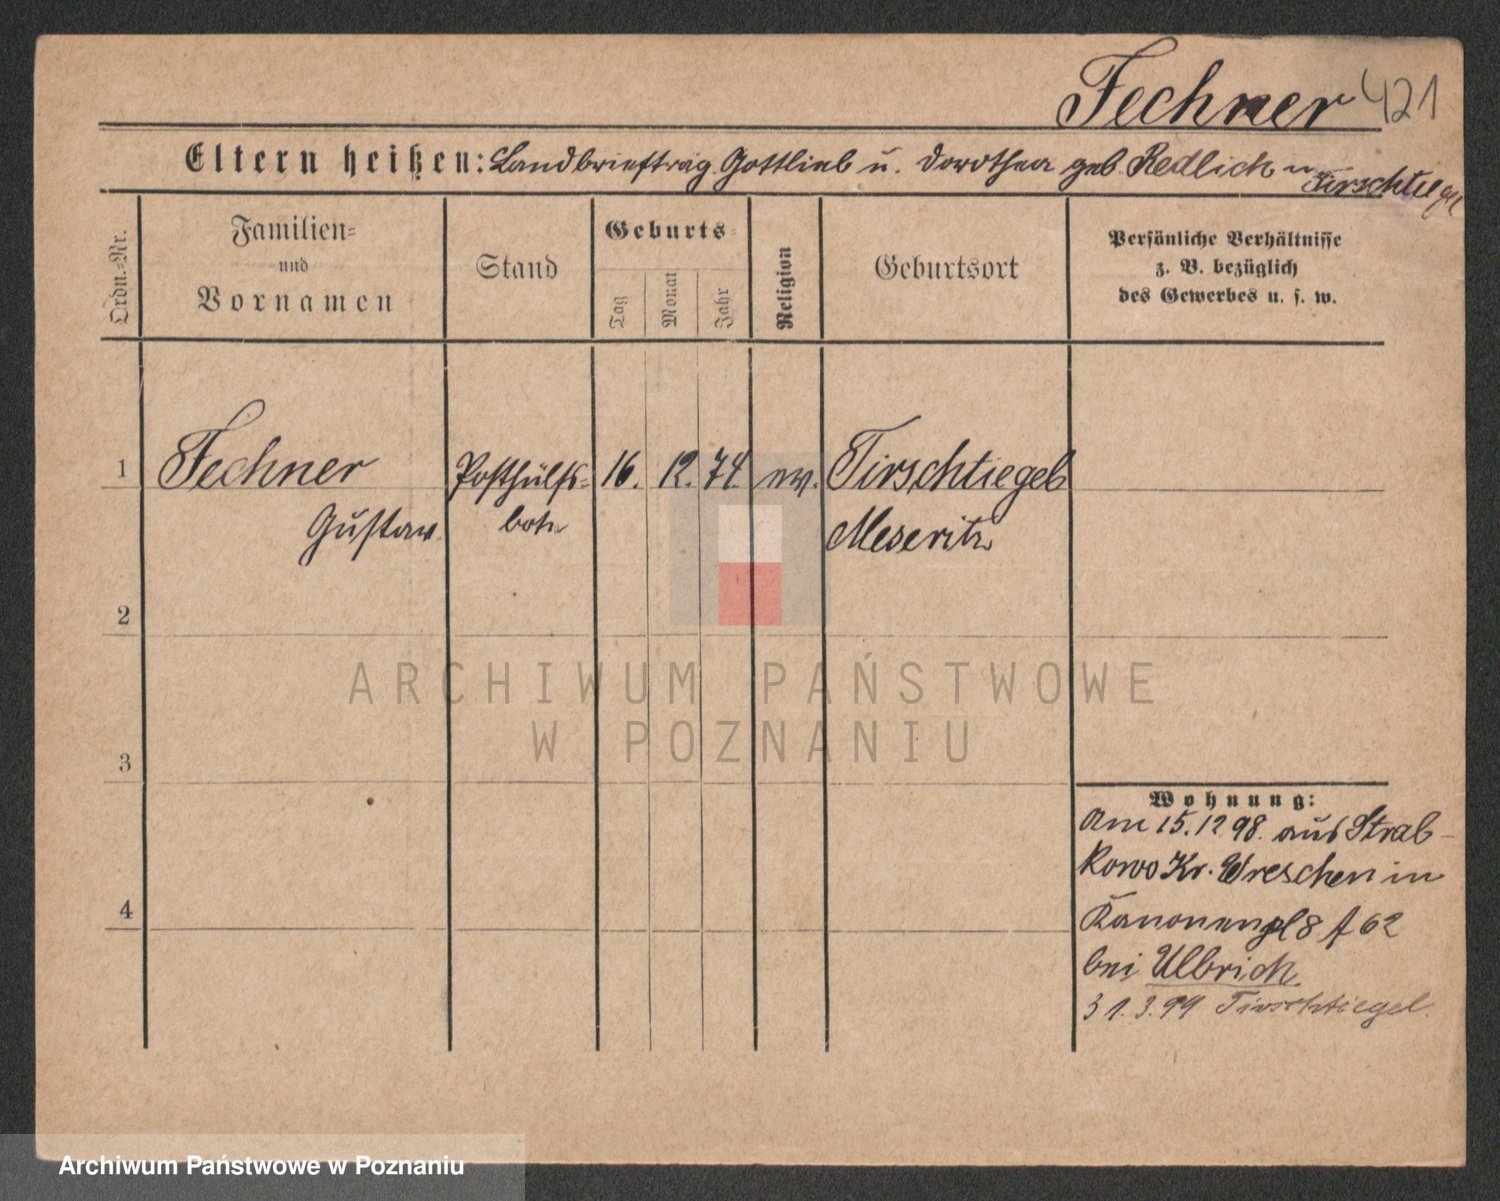 Fechner 421
Eltern heißen: Landbriefträg. Gottlieb u. Dorothea geb. Redlich in Tirschtiegel
Ordn.-Nr.
Familien-
und
Vornamen
Stand
Geburts-
Tag
Monat
Jahr
Religion
Geburtsort
Persönliche Verhältnisse
z. B. bezüglich
des Gewerbes u. s. w.
1 Fechner Posthülfs- 16. 12. 74. ev. Tirschtiegel
Gustav bote Meseritz
2
ARCHIWUM PAŃSTWOWE
W POZNANIU
3
Wohnung:
Am 15.12.98. aus Stral-
kowo Kr. Wreschen in
4
Kanonenpl 8 62
bei Ulbrich.
31.3.99 Tirschtiegel.
Archiwum Państwowe w Poznaniu